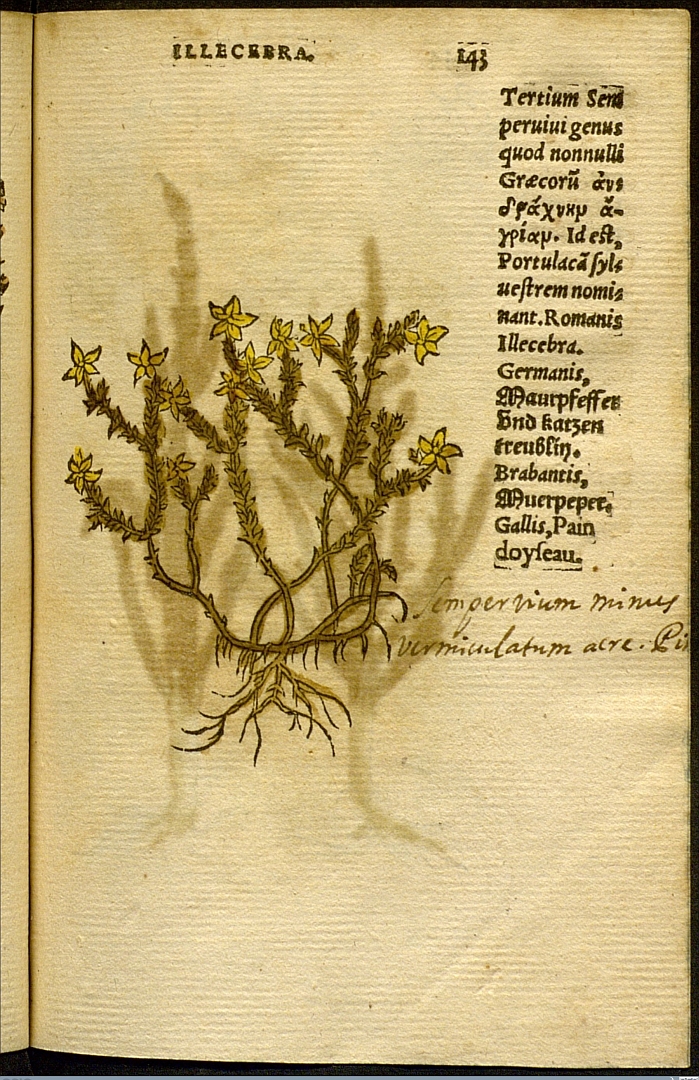 ILLECEBRA.
143
Tertium Sem
peruiui genus
quod nonnulli
Græcorũ ἀνς
δράχνημ ἀ-
γρίαμ. Id est,
Portulacã syl-
uestrem nomi-
nant. Romanis
Illecebra.
Germanis,
Maurpfeffer
vnd katzen
treublin.
Brabantis,
Muerpeper.
Gallis, Pain
doyseau.
Sempervium minus
vermiculatum acre. Pi